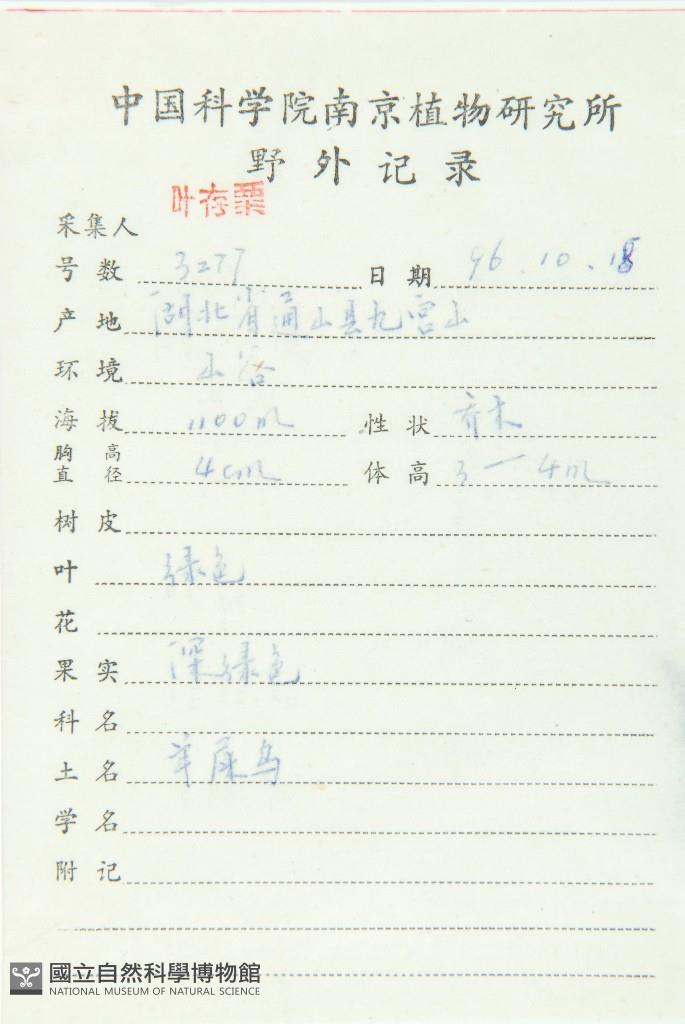 中国科学院南京植物研究所
野外记录
采集人 叶存粟
号数 3277 日期 96.10.18
产地 湖北省通山县九宫山
环境 山谷
海拔 1100m 性状 乔木
胸高直径 4cm 体高 3—4m
树皮
叶 绿色
花
果实 深绿色
科名
土名 羊屎乌
学名
附记
國立自然科學博物館
NATIONAL MUSEUM OF NATURAL SCIENCE